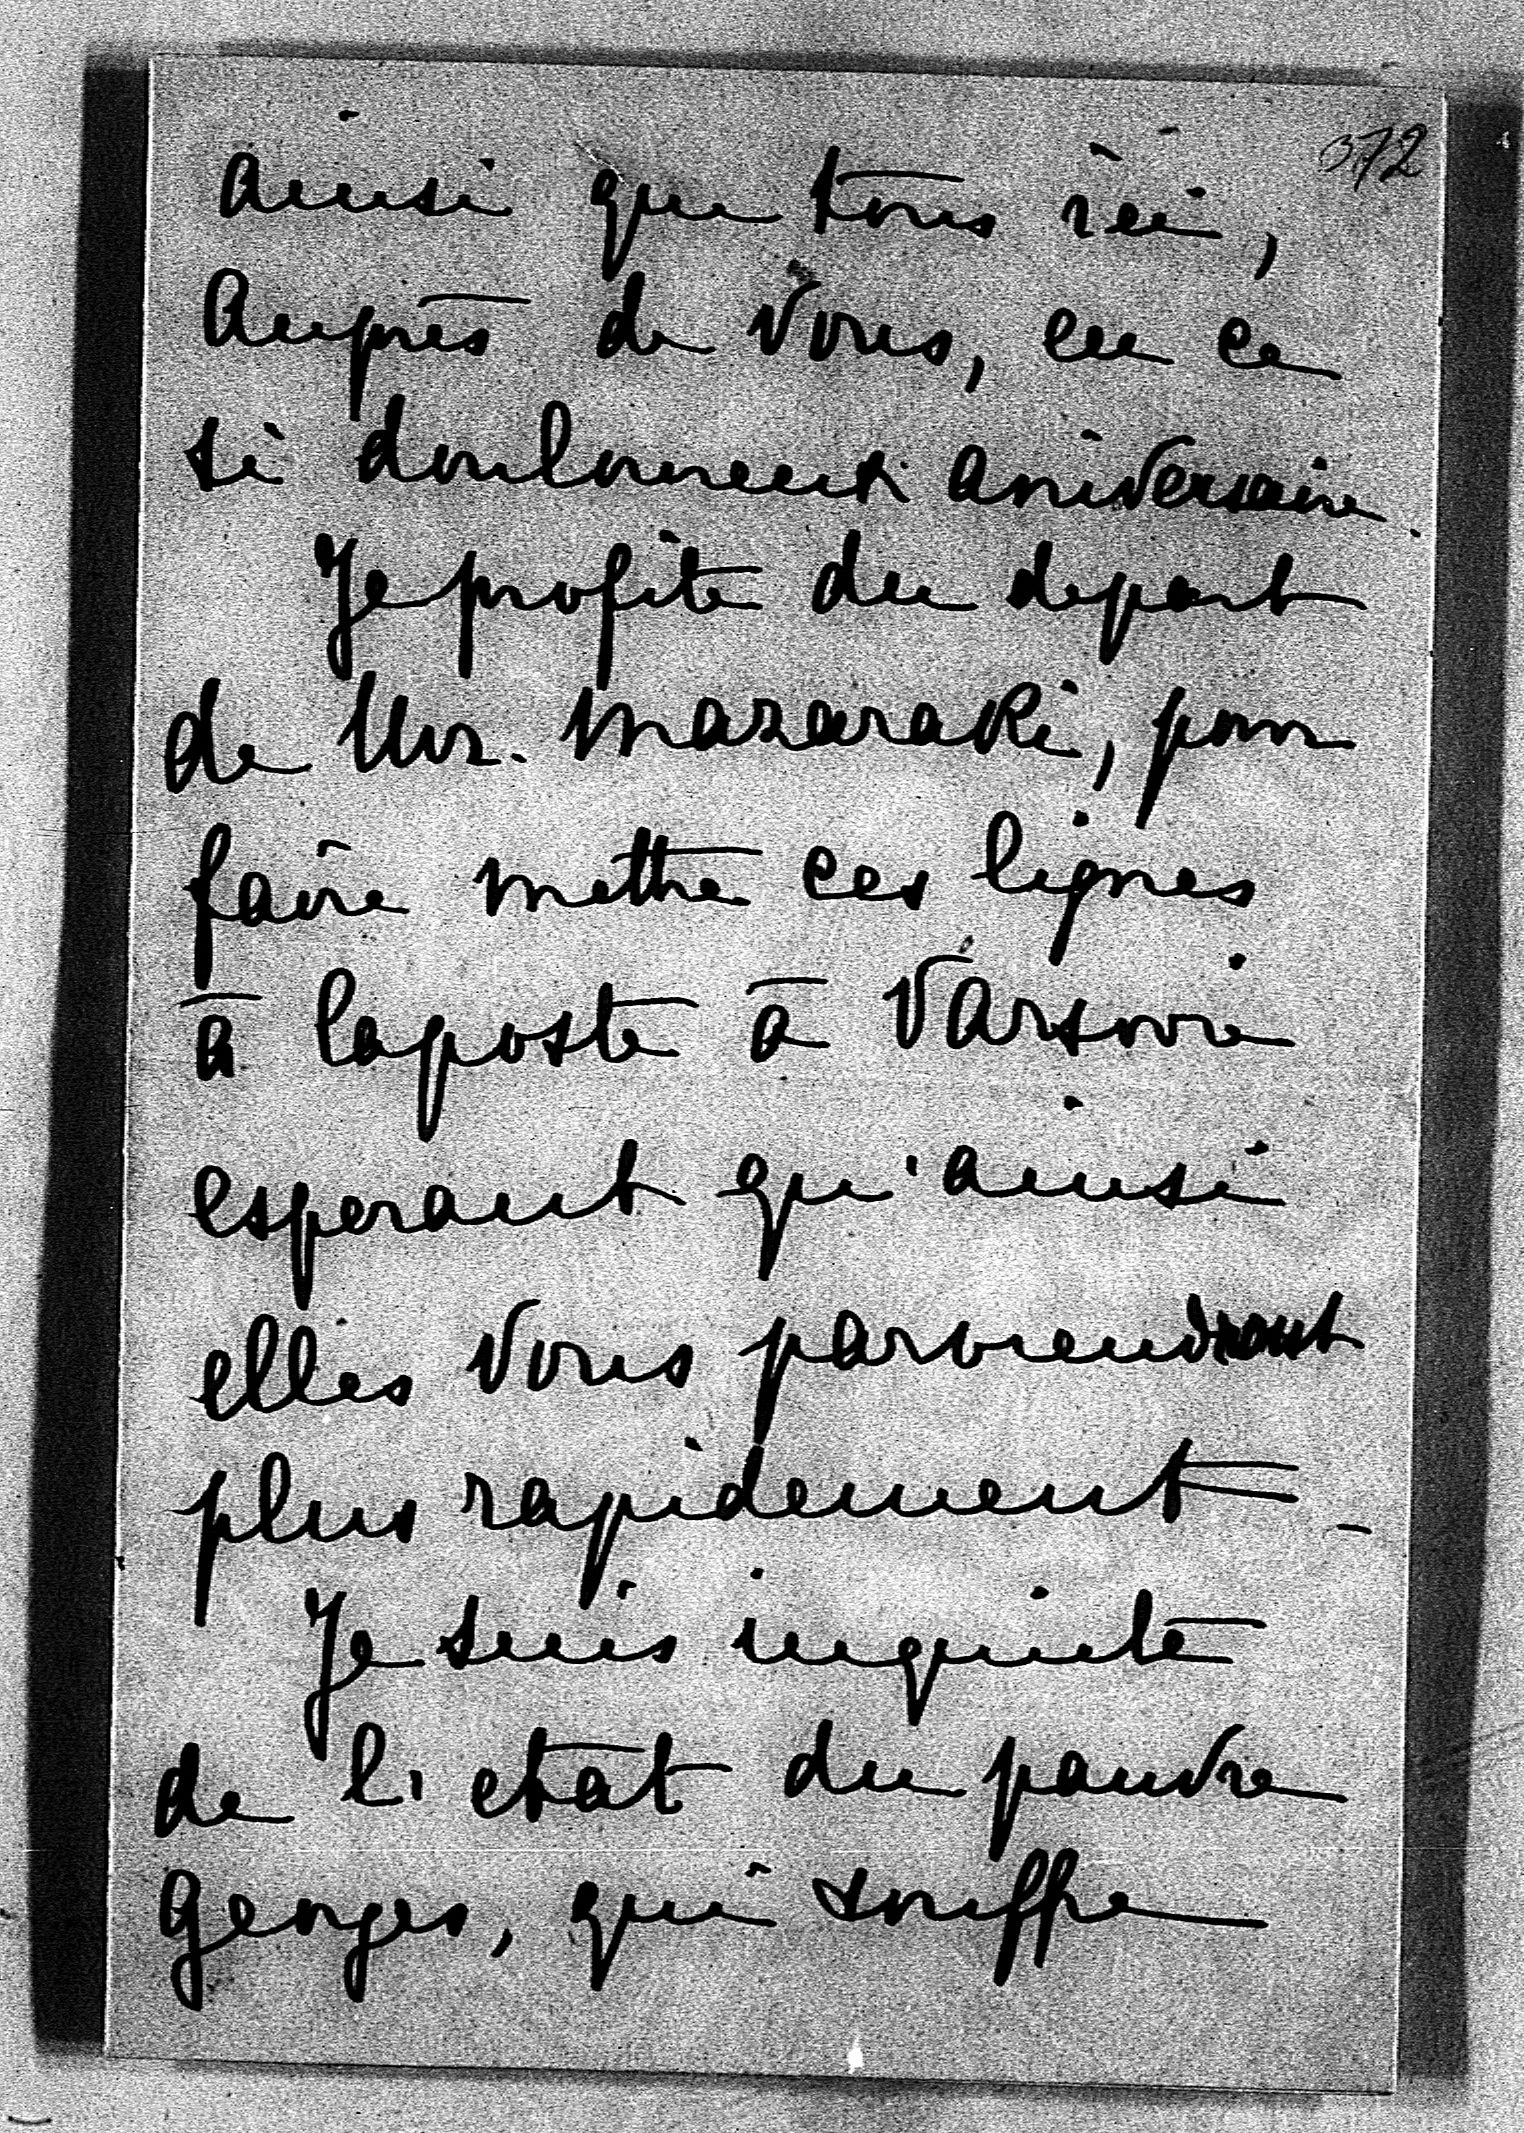 372
ainsi que tous ici,
Auprès de Vous, en ce
si douloureux aniversaire.
Je profite du depart
de Mr. Mazaraki, pour
faire mettre ces lignes
à la poste à Varsovie
esperant qu'ainsi
elles Vous parviendront
plus rapidement –
Je suis inquiete
de l'etat du pauvre
Georges, qui souffre